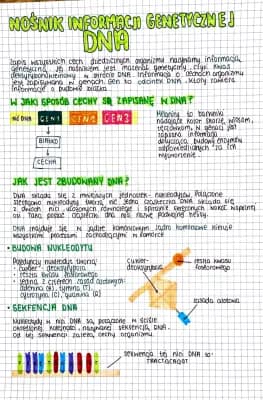 NOŚNIK INFORMACJI GENETYCZNEJ
DNA
Zapis wszystkich cech dziedzicznych organizmu nazywamy informacją
genetyczną. Jej nośnikiem jest materiał genetyczny, czyli kwas
deoksyrybonukleinowy w skrócie DNA. Informacja o cechach organizmu
jest zapisywana w genach. Gen to odcinek DNA, który zawiera
informacje o budowie białka.
W JAKI SPOSÓB CECHY SĄ ZAPISANE W DNA?
NIĆ DNA GEN 1 GEN 2 GEN 3
BIAŁKO
CECHA
Melaniny to barwniki
nadające kolor skórze, włosom,
tęczówkom. W genach jest
zapisana informacja
dotycząca budowy enzymów
odpowiedzialnych za ich
wytworzenie
JAK JEST ZBUDOWANY DNA?
DNA składa się z mniejszych jednostek - nukleotydów. Połączone
szeregowo nukleotydy tworzą nić. Jedna cząsteczka DNA składa się
z dwóch nici ułożonych równolegle i spiralnie skręconych wokół wspólnej
osi. Taka postać cząsteczki DNA nosi nazwę podwójnej helisy.
DNA znajduje się w jądrze komórkowym. Jądro komórkowe kieruje
wszystkimi procesami zachodzącymi w komórce
• BUDOWA NUKLEOTYDU
Pojedynczy nukleotyd tworzą:
• cukier - deoksyryboza
• reszta kwasu fosforowego
• jedna z czterech zasad azotowych:
adenina (A), tymina (T),
cytozyna (C), guanina (G)
cukier-
deoksyryboza
reszta kwasu
fosforowego
zasada azotowa
• SEKWENCJA DNA
Nukleotydy w nici DNA są połączone w ściśle
określonej kolejności, nazywanej sekwencją DNA.
Od tej sekwencji zależą cechy organizmu.
sekwencja tej nici DNA to: